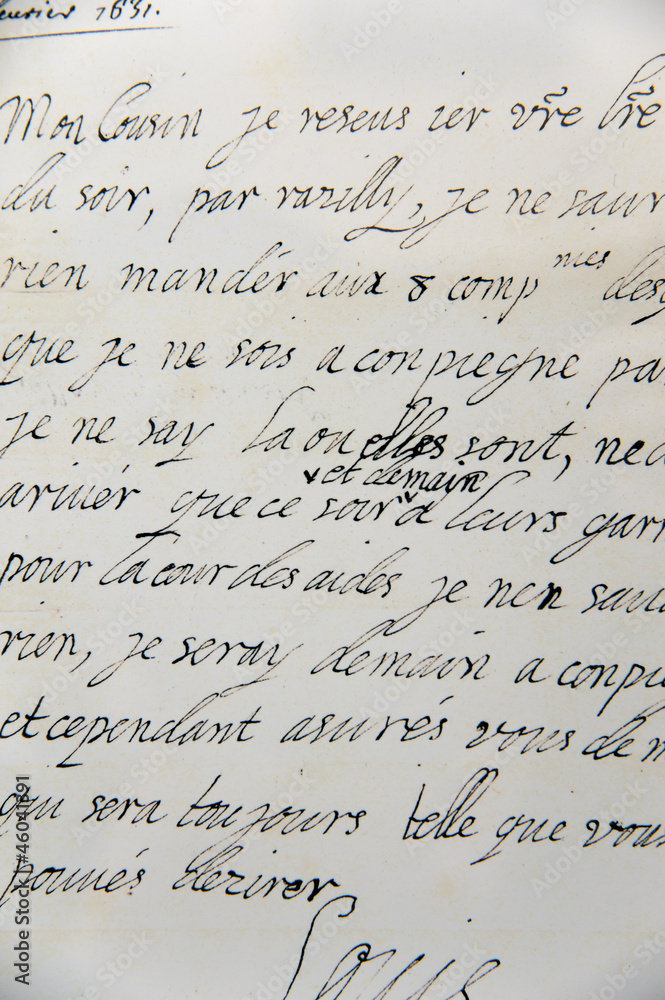 feurier 1631.
Mon Cousin je reseus ier vr̃e lr̃e
du soir, par razilly, je ne saur
rien mandér aux 8 comp nies des
que je ne sois a conpiegne pa
je ne say la ou elles sont, ne
et demain
ariuér que ce soir a leurs garn
pour la cour des aides je nen sau
rien, je seray demain a conpie
et cependant asurés vous de m
qui sera toujours telle que vous
pouués dezirer
Louis
Adobe Stock | #46041391